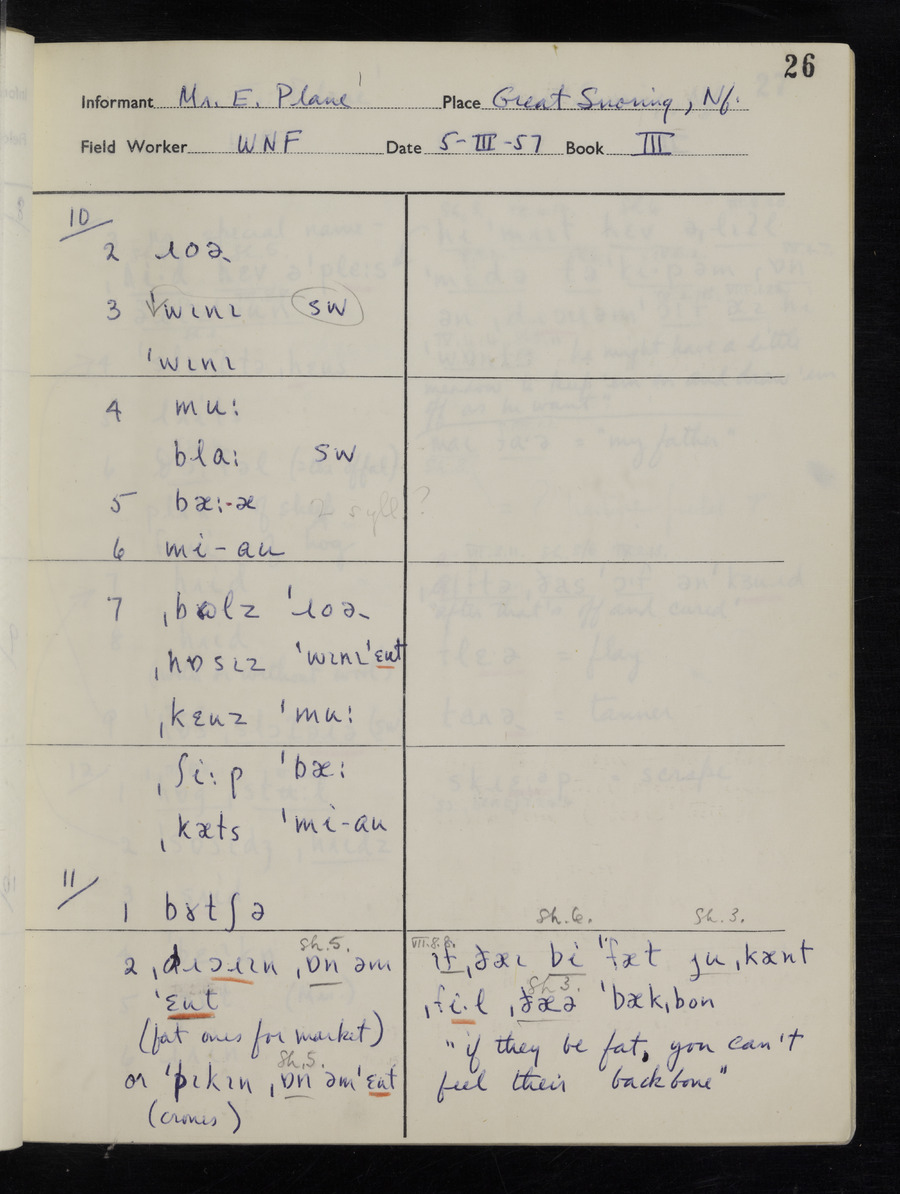 26
Informant Mr. E. Plane Place Great Snoring, Nf.
Field Worker WNF Date 5-III-57 Book III
10/
2 ɹoə
3 ˈwɪnɪ SW
ˈwɪnɪ
4 mu:
bla: SW
5 bæ:-æ 2 syll?
6 mi-au
7 ˌbʊlz ˈɹoə
ˌhɒsɪz ˈwɪnɪˈɛut
ˌkɛuz ˈmu:
ˌʃi:p ˈbæ:
ˌkæts ˈmi-au
11/
1 bɤtʃə
Sh.5.
2 ˌdɹɔɹɪn ˌɒn əm
ˈɛut
(fat ones for market)
Sh.5.
or ˈpɪkɪn ˌɒn əmˈɛut
(crones)
Sh.6. Sh.3.
VII.8.8.
ɪf ˌðæɪ bi ˈˈfæt ju ˌkænt
Sh3.
ˌfi·l ˌðæə ˈbækˌbon
"if they be fat, you can't
feel their backbone"